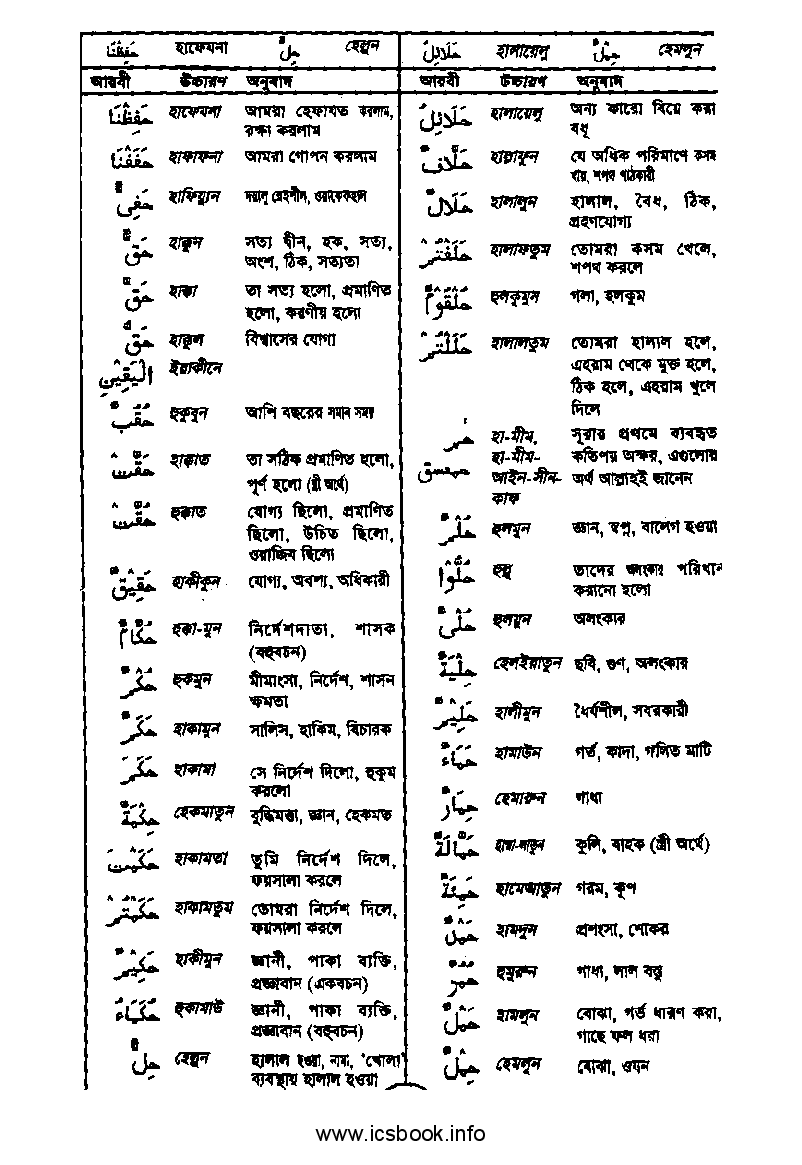 حَفِظْنَا হাফেযনা حِلٌّ হেল্লুন
আরবী উচ্চারণ অনুবাদ
حَفِظْنَا হাফেযনা আমরা হেফাযত করলাম,
রক্ষা করলাম
حَفَفْنَا হাফাফনা আমরা গোপন করলাম
حَفِىٌّ হাফিয়্যুন দয়ালু স্নেহশীল, ওয়াকেফহাল
حَقٌّ হাক্কুন সত্য দ্বীন, হক, সত্য,
অংশ, ঠিক, সত্যতা
حَقَّ হাক্কা তা সত্য হলো, প্রমাণিত
হলো, করণীয় হলো
حَقُّ হাক্কুল বিশ্বাসের যোগ্য
الْيَقِيْنِ ইয়াকীনে
حُقُبٌ হুকুবুন আশি বছরের সমান সময়
حَقَّتْ হাক্কাত তা সঠিক প্রমাণিত হলো,
পূর্ণ হলো (স্ত্রী অর্থে)
حُقَّتْ হুক্কাত যোগ্য ছিলো, প্রমাণিত
ছিলো, উচিত ছিলো,
ওয়াজিব ছিলো
حَقِيْقٌ হাকীকুন যোগ্য, অবশ্য, অধিকারী
حُكَّامٌ হুক্কা-মুন নির্দেশদাতা, শাসক
(বহুবচন)
حُكْمٌ হুকমুন মীমাংসা, নির্দেশ, শাসন
ক্ষমতা
حَكَمٌ হাকামুন সালিস, হাকিম, বিচারক
حَكَمَ হাকামা সে নির্দেশ দিলো, হুকুম
করলো
حِكْمَةٌ হেকমাতুন বুদ্ধিমত্তা, জ্ঞান, হেকমত
حَكَمْتَ হাকামতা তুমি নির্দেশ দিলে,
ফয়সালা করলে
حَكَمْتُمْ হাকামতুম তোমরা নির্দেশ দিলে,
ফয়সালা করলে
حَكِيْمٌ হাকীমুন জ্ঞানী, পাকা ব্যক্তি,
প্রজ্ঞাবান (একবচন)
حُكَمَاءُ হুকামাউ জ্ঞানী, পাকা ব্যক্তি,
প্রজ্ঞাবান (বহুবচন)
حِلٌّ হেল্লুন হালাল হওয়া, নামা, 'খোলা'
ব্যবস্থায় হালাল হওয়া
حَلَائِلُ হালায়েলু حِمْلٌ হেমলুন
আরবী উচ্চারণ অনুবাদ
حَلَائِلُ হালায়েলু অন্য কারো বিয়ে করা
বধূ
حَلَّافٌ হাল্লাফুন যে অধিক পরিমাণে কসম
খায়, শপথ পাঠকারী
حَلَالٌ হালালুন হালাল, বৈধ, ঠিক,
গ্রহণযোগ্য
حَلَفْتُمْ হালাফতুম তোমরা কসম খেলে,
শপথ করলে
حُلْقُوْمٌ হুলকুমুন গলা, হলকুম
حَلَلْتُمْ হালালতুম তোমরা হালাল হলে,
এহরাম থেকে মুক্ত হলে,
ঠিক হলে, এহরাম খুলে
দিলে
حٰمٓ হা-মীম, সূরার প্রথমে ব্যবহৃত
حٰمٓعٓسٓقٓ হা-মীম- কতিপয় অক্ষর, এগুলোর
আইন-সীন- অর্থ আল্লাহই জানেন
কাফ
حُلُمٌ হুলমুন জ্ঞান, স্বপ্ন, বালেগ হওয়া
حُلُّوْا হুল্লু তাদের অলংকার পরিধান
করানো হলো
حُلِىٌّ হুলয়ুন অলংকার
حِلْيَةٌ হেলইয়াতুন ছবি, গুণ, অলংকার
حَلِيْمٌ হালীমুন ধৈর্যশীল, সবরকারী
حَمَاءٌ হামাউন গর্ত, কাদা, গলিত মাটি
حِمَارٌ হেমারুন গাধা
حَمَّالَةٌ হাম্মা-লাতুন কুলি, বাহক (স্ত্রী অর্থে)
حَمِئَةٌ হামেআতুন গরম, কূপ
حَمْدٌ হামদুন প্রশংসা, শোকর
حُمُرٌ হুমুরুন গাধা, লাল বস্তু
حَمْلٌ হামলুন বোঝা, গর্ভ ধারণ করা,
গাছে ফল ধরা
حِمْلٌ হেমলুন বোঝা, ওযন
www.icsbook.info